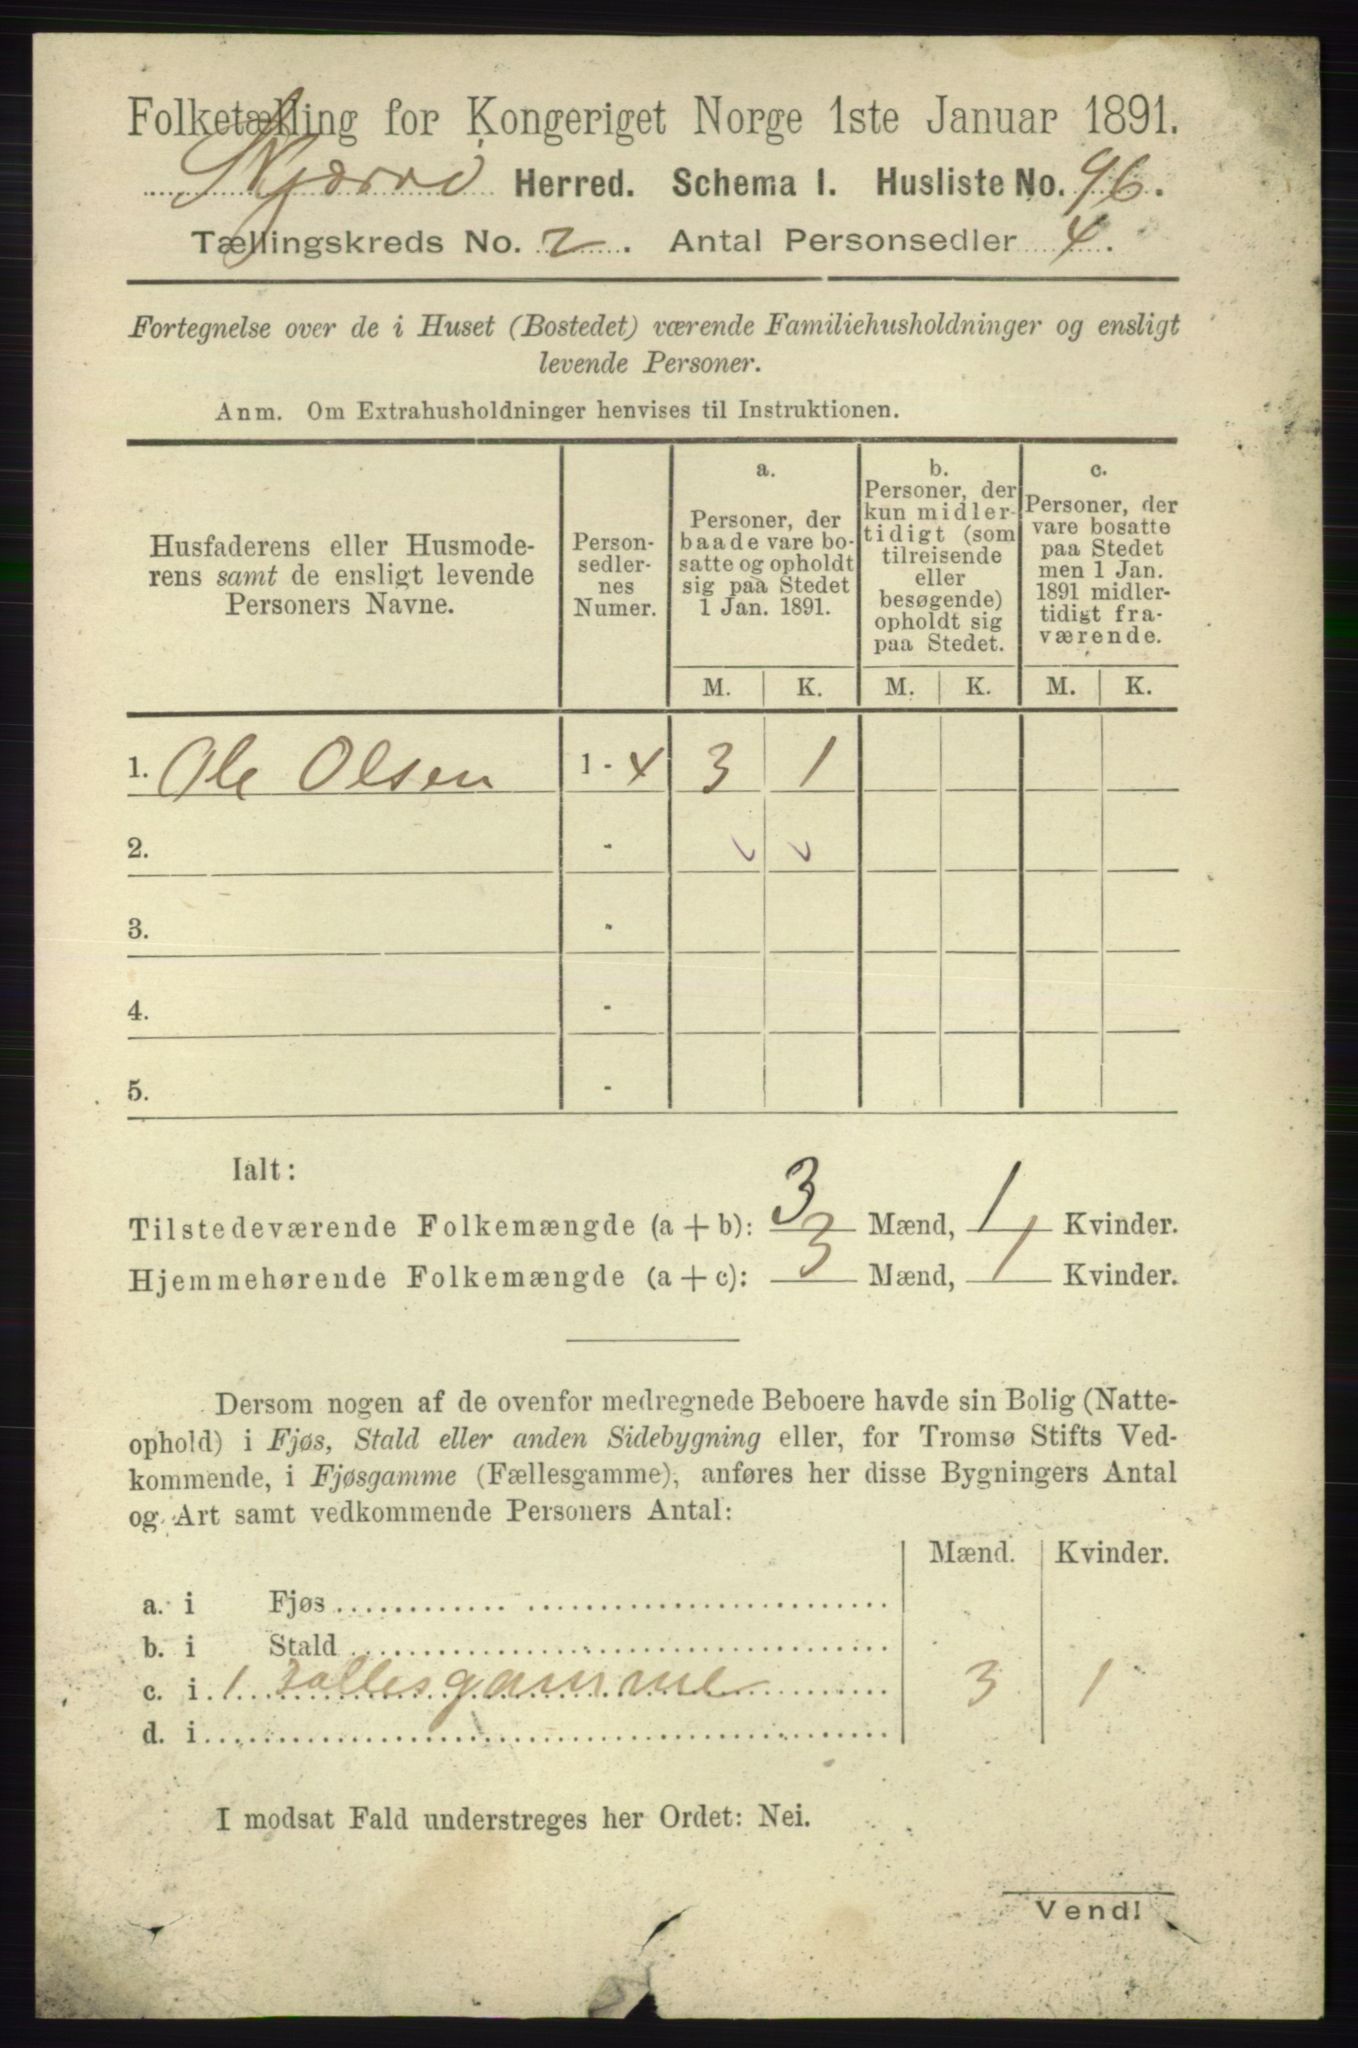 Folketælling for Kongeriget Norge 1ste Januar 1891.
Skjærvø Herred. Schema I. Husliste No. 96.
Tællingskreds No. 2. Antal Personsedler 4.
Fortegnelse over de i Huset (Bostedet) værende Familiehusholdninger og ensligt
levende Personer.
Anm. Om Extrahusholdninger henvises til Instruktionen.
Husfaderens eller Husmode-
rens samt de ensligt levende
Personers Navne.
Person-
sedler-
nes
Numer.
a.
Personer, der
baade vare bo-
satte og opholdt
sig paa Stedet
1 Jan. 1891.
b.
Personer, der
kun midler-
tidigt (som
tilreisende
eller
besøgende)
opholdt sig
paa Stedet.
c.
Personer, der
vare bosatte
paa Stedet
men 1 Jan.
1891 midler-
tidigt fra-
værende.
M. K. M. K. M. K.
1. Ole Olsen 1 - 4 3 1
2. -
3. -
4. -
5. -
Ialt:
Tilstedeværende Folkemængde (a + b): 3 Mænd, 1 Kvinder.
Hjemmehørende Folkemængde (a + c): 3 Mænd, 1 Kvinder.
Dersom nogen af de ovenfor medregnede Beboere havde sin Bolig (Natte-
ophold) i Fjøs, Stald eller anden Sidebygning eller, for Tromsø Stifts Ved-
kommende, i Fjøsgamme (Fællesgamme), anføres her disse Bygningers Antal
og Art samt vedkommende Personers Antal:
Mænd. Kvinder.
a. i Fjøs
b. i Stald
c. i 1 Fællesgamme 3 1
d. i
I modsat Fald understreges her Ordet: Nei.
Vend!